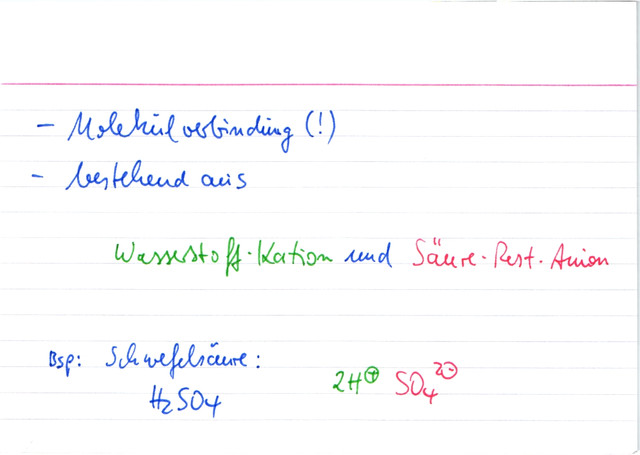 - Molekülverbindung (!)
- bestehend aus
Wasserstoff-Kation und Säure-Rest-Anion
Bsp: Schwefelsäure:
H₂SO₄ 2H⊕ SO₄²⊖